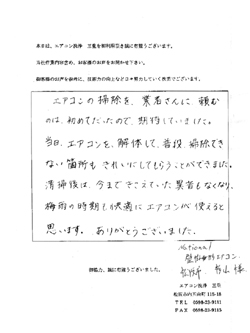 本日は、エアコン洗浄 豆電をご利用頂き誠に有難うございます。
当社作業内容含め、お客様のお声をお聞かせ下さい。
お客様のお声を参考に、技術力の向上など日々努力していく所存でございます。
エアコンの掃除を、業者さんに頼む
のは、初めてだったので、期待していました。
当日、エアコンを、解体して、普段、掃除できな
い箇所もきれいにしてもらうことができました。
清掃後は、今まできこえていた異音もなくなり、
梅雨の時期も快適にエアコンが使えると
思います。ありがとうございました。
National
壁掛 エアコン
様
御協力、誠に有難うございました。
エアコン洗浄
松阪市
TEL 0598-25-9111
FAX 0598-25-9113